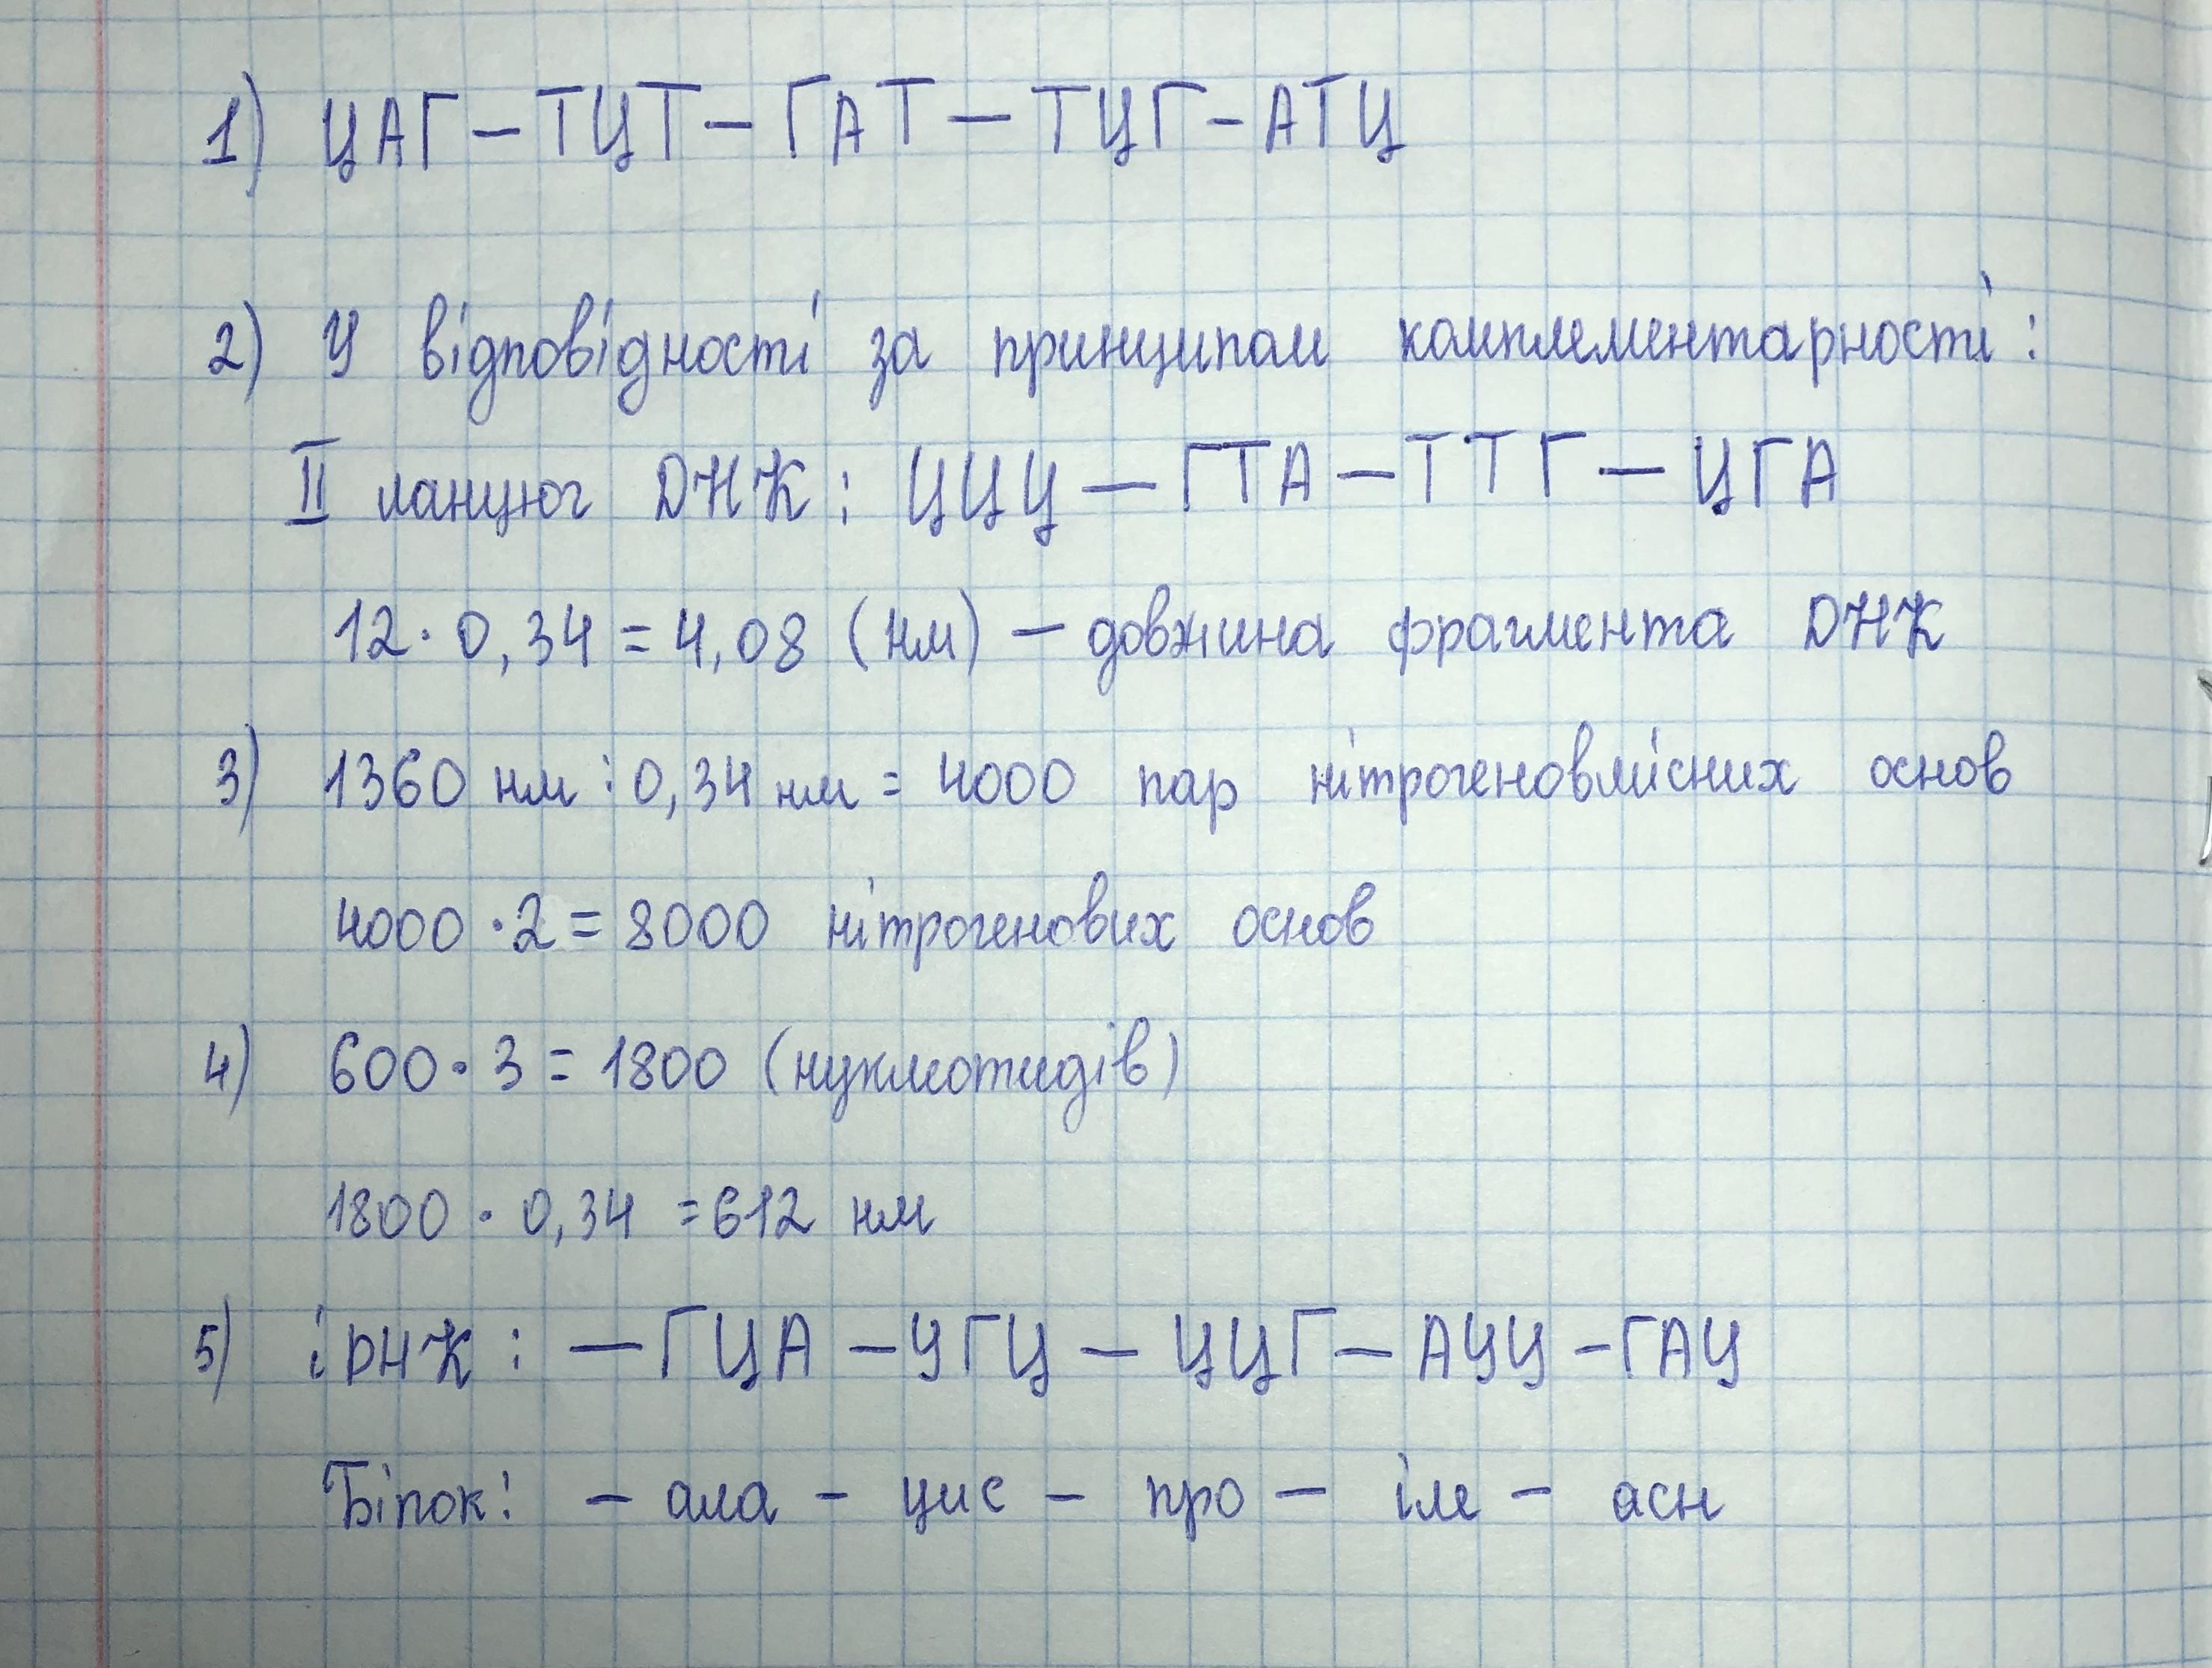 1) ЦАГ – ТЦТ – ГАТ – ТЦГ – АТЦ
2) У відповідності за принципом комплементарності:
II ланцюг ДНК: ЦЦЦ – ГТА – ТТГ – ЦГА
12 · 0,34 = 4,08 (нм) – довжина фрагмента ДНК
3) 1360 нм : 0,34 нм = 4000 пар нітрогеновмісних основ
4000 · 2 = 8000 нітрогенових основ
4) 600 · 3 = 1800 (нуклеотидів)
1800 · 0,34 = 612 нм
5) іРНК: – ГЦА – УГЦ – ЦЦГ – АУУ – ГАУ
Білок: – ала – цис – про – іле – асн